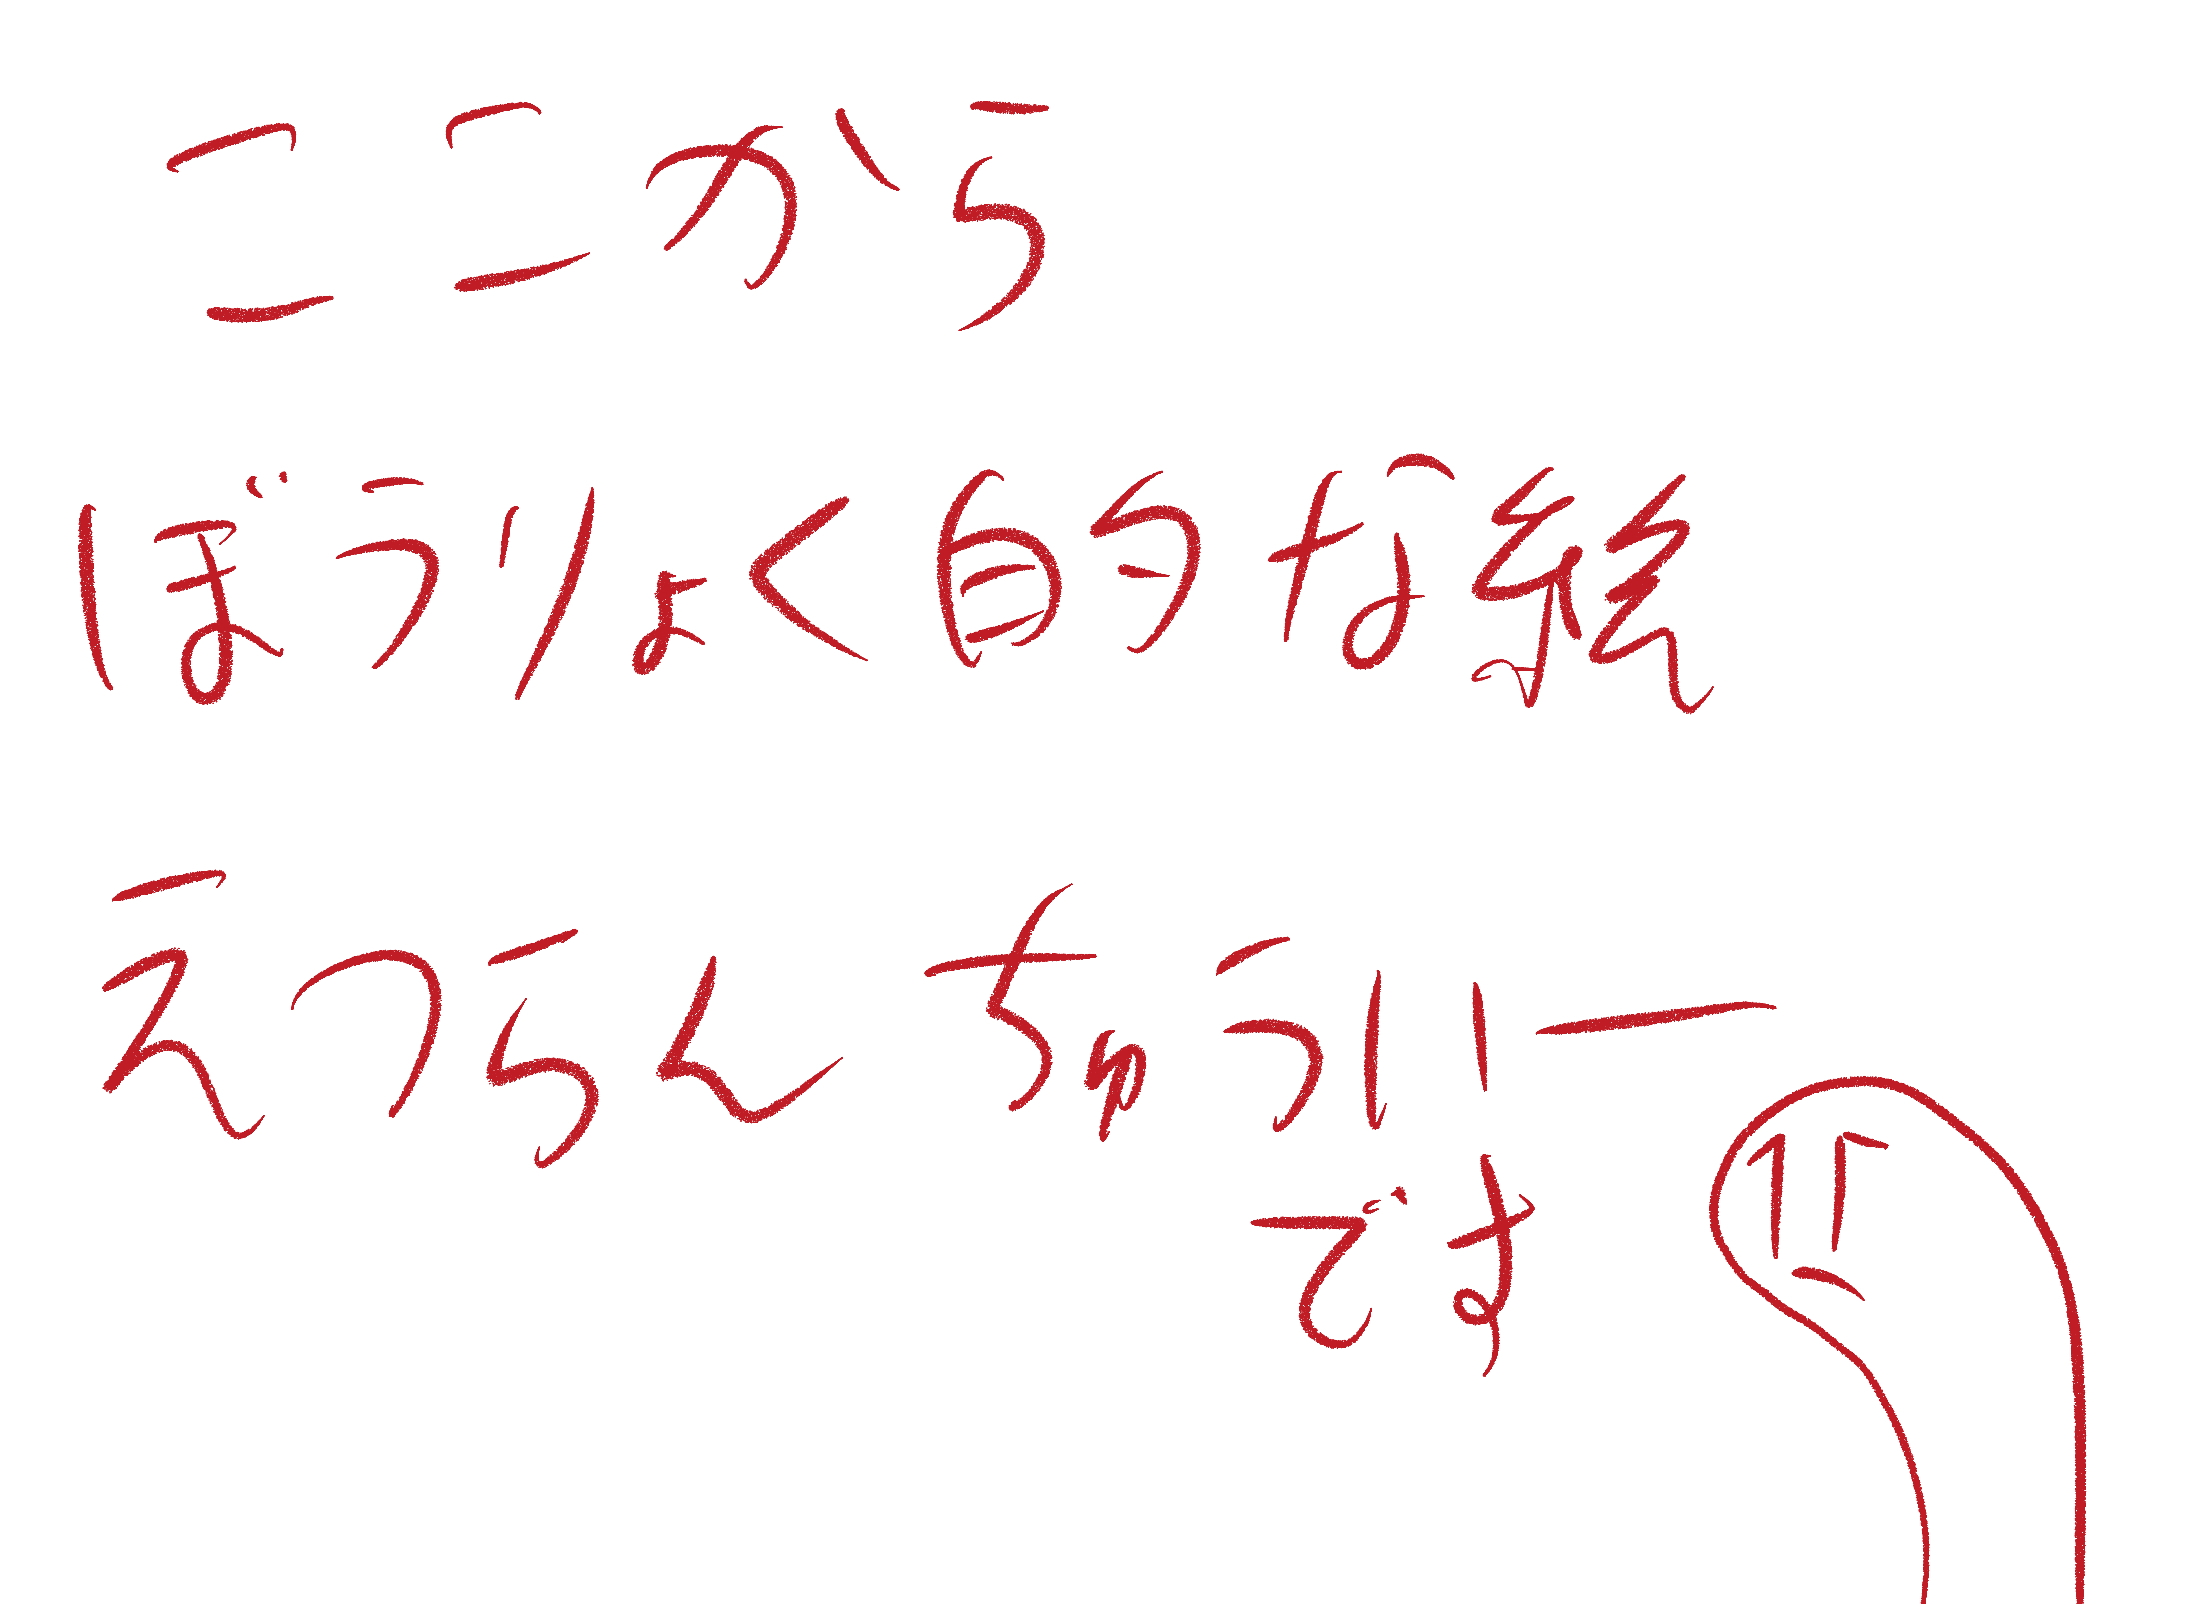 ここから
ぼうりょく的な絵
えつらんちゅういー
です